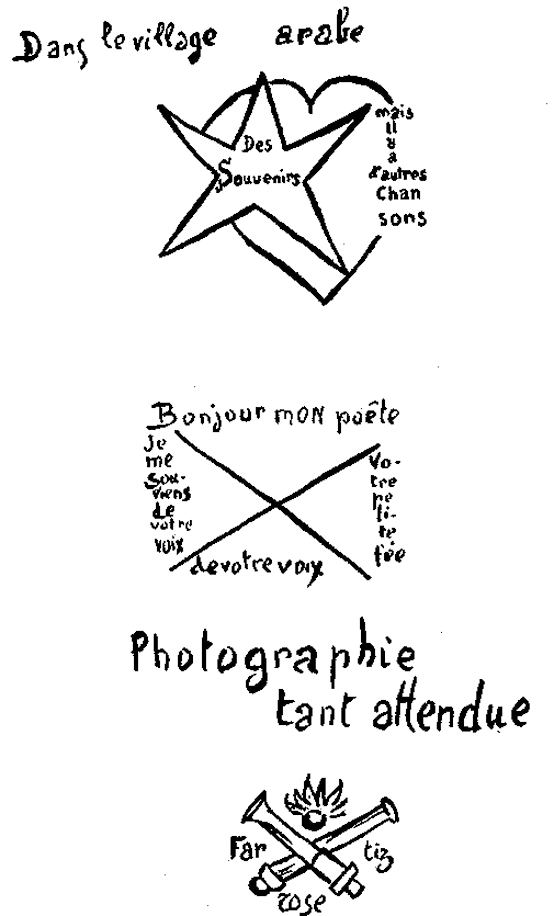 Dans le village arabe
Des
Souvenirs
mais
il
y
a
d'autres
Chan
sons
Bonjour mon poète
Je
me
sou-
viens
de
votre
voix
de votre voix
Vo-
tre
pe
ti-
te
fée
Photographie
tant attendue
Far
tiz
rose